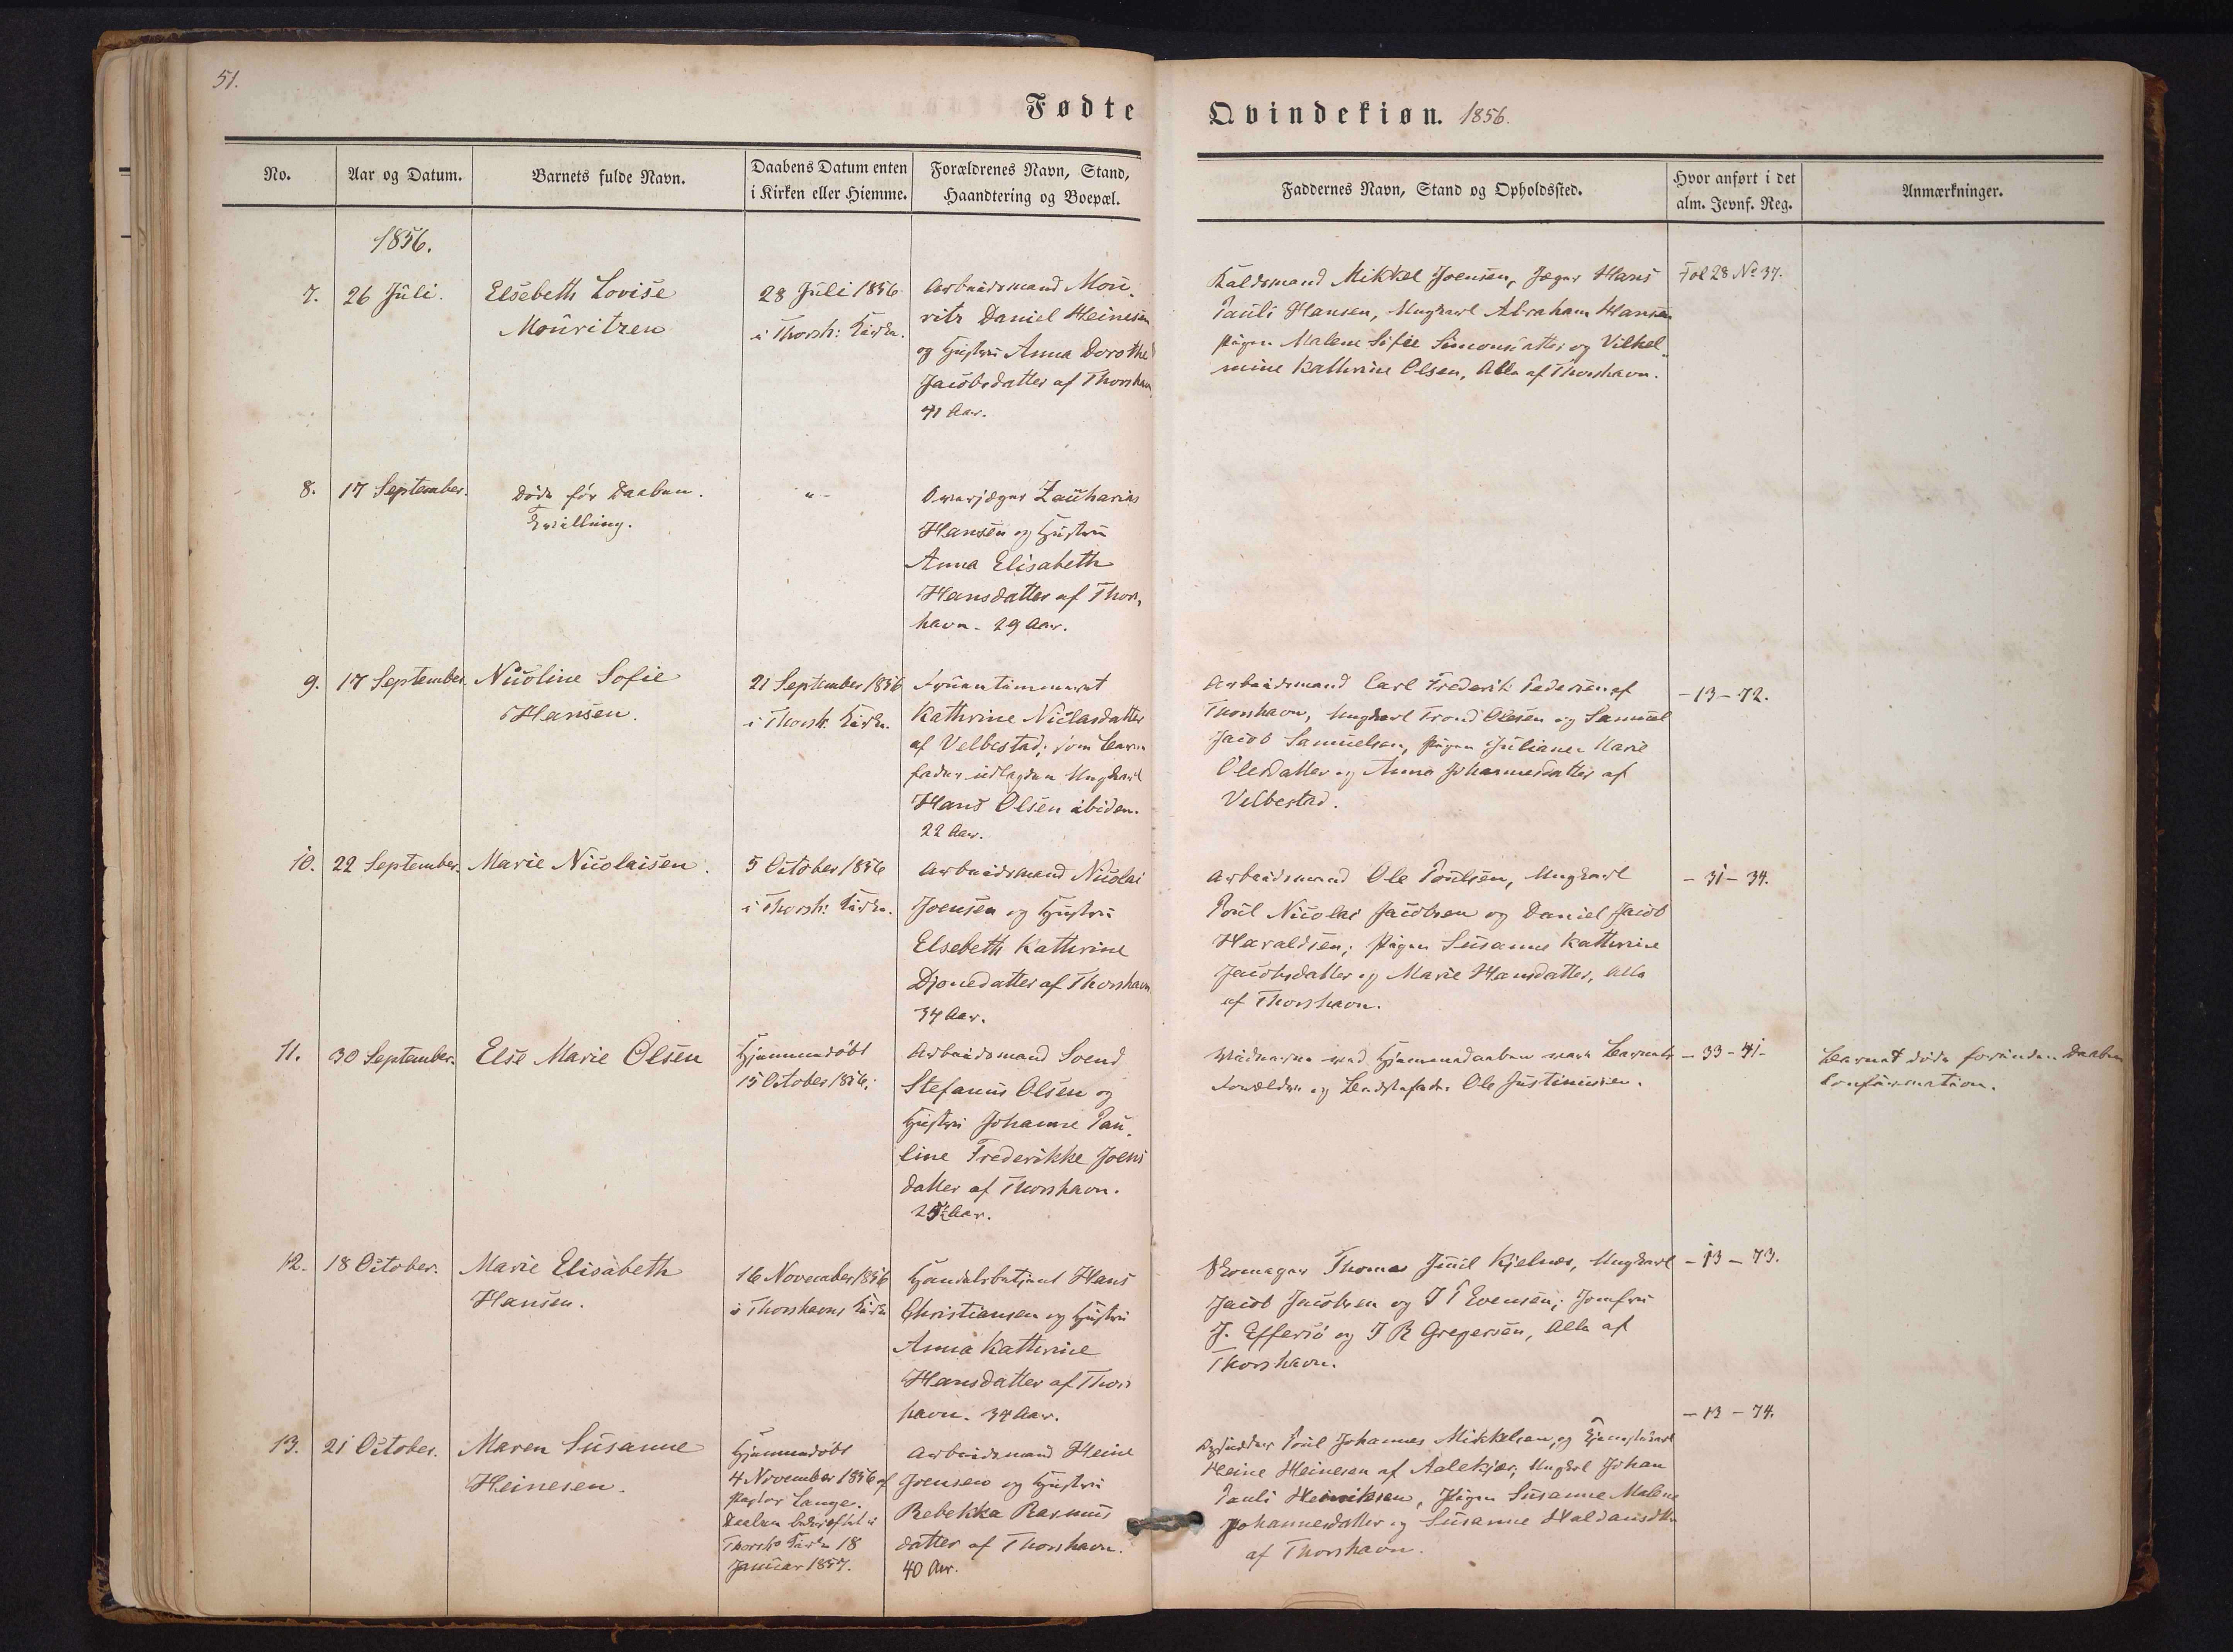 51.
Fødte
Qvindekiøn. 1856.
No.
Aar og Datum.
Barnets fulde Navn.
Daabens Datum enten
i Kirken eller Hiemme.
Forældrenes Navn, Stand,
Haandtering og Boepæl.
Faddernes Navn, Stand og Opholdssted.
Hvor anført i det
alm. Jevnf. Reg.
Anmærkninger.
1856.
7.
26 Juli.
Elsebeth Lovise
Mouritzen
28 Juli 1856
i Thorsh: Kirke.
Arbeidsmand Mou-
ritz Daniel Heinesen
og Hustru Anna Dorothea
Jacobsdatter af Thorshavn
41 Aar.
Mikkel Joensen, Jæger Hans
Pauli Hansen, Ungkarl Abraham Hansen
Pigen Malene Sofie Simonsdatter og Vilhel-
mine Kathrine Olsen, Alle af Thorshavn.
Fol 28 No 37.
8.
17 September.
Døde før Daaben.
Tvilling.
-"-
Zacharias
Hansen og Hustru
Anna Elisabeth
Hansdatter af Thors-
havn. 29 Aar.
9.
17 September.
Nicoline Sofie
Hansen.
21 September 1856
i Thorsh. Kirke.
Fruentimmeret
Kathrine Niclasdatter
af Velbestad; som Barne-
fader udlagden Ungkarl
Hans Olsen ibiden.
22 Aar.
Arbeidsmand Carl Frederik Pedersen af
Thorshavn, Ungkarl Trond Olesen og Samuel
Jacob Samuelsen, Pigen Juliane Marie
Olesdatter og Anna Johannesdatter af
Velbestad.
-13-72.
10.
22 September.
Marie Nicolaisen.
5 October 1856
i Thorsh: Kirke.
Arbeidsmand Nicolai
Joensen og Hustru
Elsebeth Kathrine
Djonedatter af Thorshavn
34 Aar.
Arbeidsmand Ole Poulsen, Ungkarl
Poul Nicolai Jacobsen og Daniel Jacob
Haraldsen; Pigen Susanne Kathrine
Jacobsdatter og Marie Hansdatter, Alle
af Thorshavn.
-31-34.
11.
30 September.
Else Marie Olsen
Hjemmedøbt
15 October 1856.
Arbeidsmand Svend
Stefanus Olsen og
Hustru Johanne Pau-
line Frederikke Joens
datter af Thorshavn.
Vidnerne ved Hjemmedaaben vare Barnets
Forældre og Bedstefader Ole Justinussen.
-33-41-
Barnet døde forinden Daabens
Confirmation.
12.
18 October.
Marie Elisabeth
Hansen.
16 November 1856
i Thorshavns Kirke
Handelsbetjent Hans
Christiansen og Hustru
Anna Kathrine
Hansdatter af Thors
havn. 34 Aar.
Skomager Thomas Juul Kjelnæs, Ungkarl
Jacob Jacobsen og J P Evensen; Jomfru
J. Effersö og J R Gregersen, Alle af
Thorshavn.
-13-73.
13.
21 October.
Maren Susanne
Heinesen.
Hjemmedøbt
4 November 1856 af
Pastor Lange.
Daaben bekræftet i
Thorsh. Kirke 18
Januar 1857.
Arbeidsmand Heine
Joensen og Hustru
Rebekka Rasmus
datter af Thorshavn.
40 Aar.
Poul Johannes Mikkelsen, og
Heine Heinesen af Aalekjær, Ungkarl Johan
Pauli Heinriksen, Pigen Susanne Malene
Johannesdatter og Susanne Haldansdtr
af Thorshavn.
-13-74.